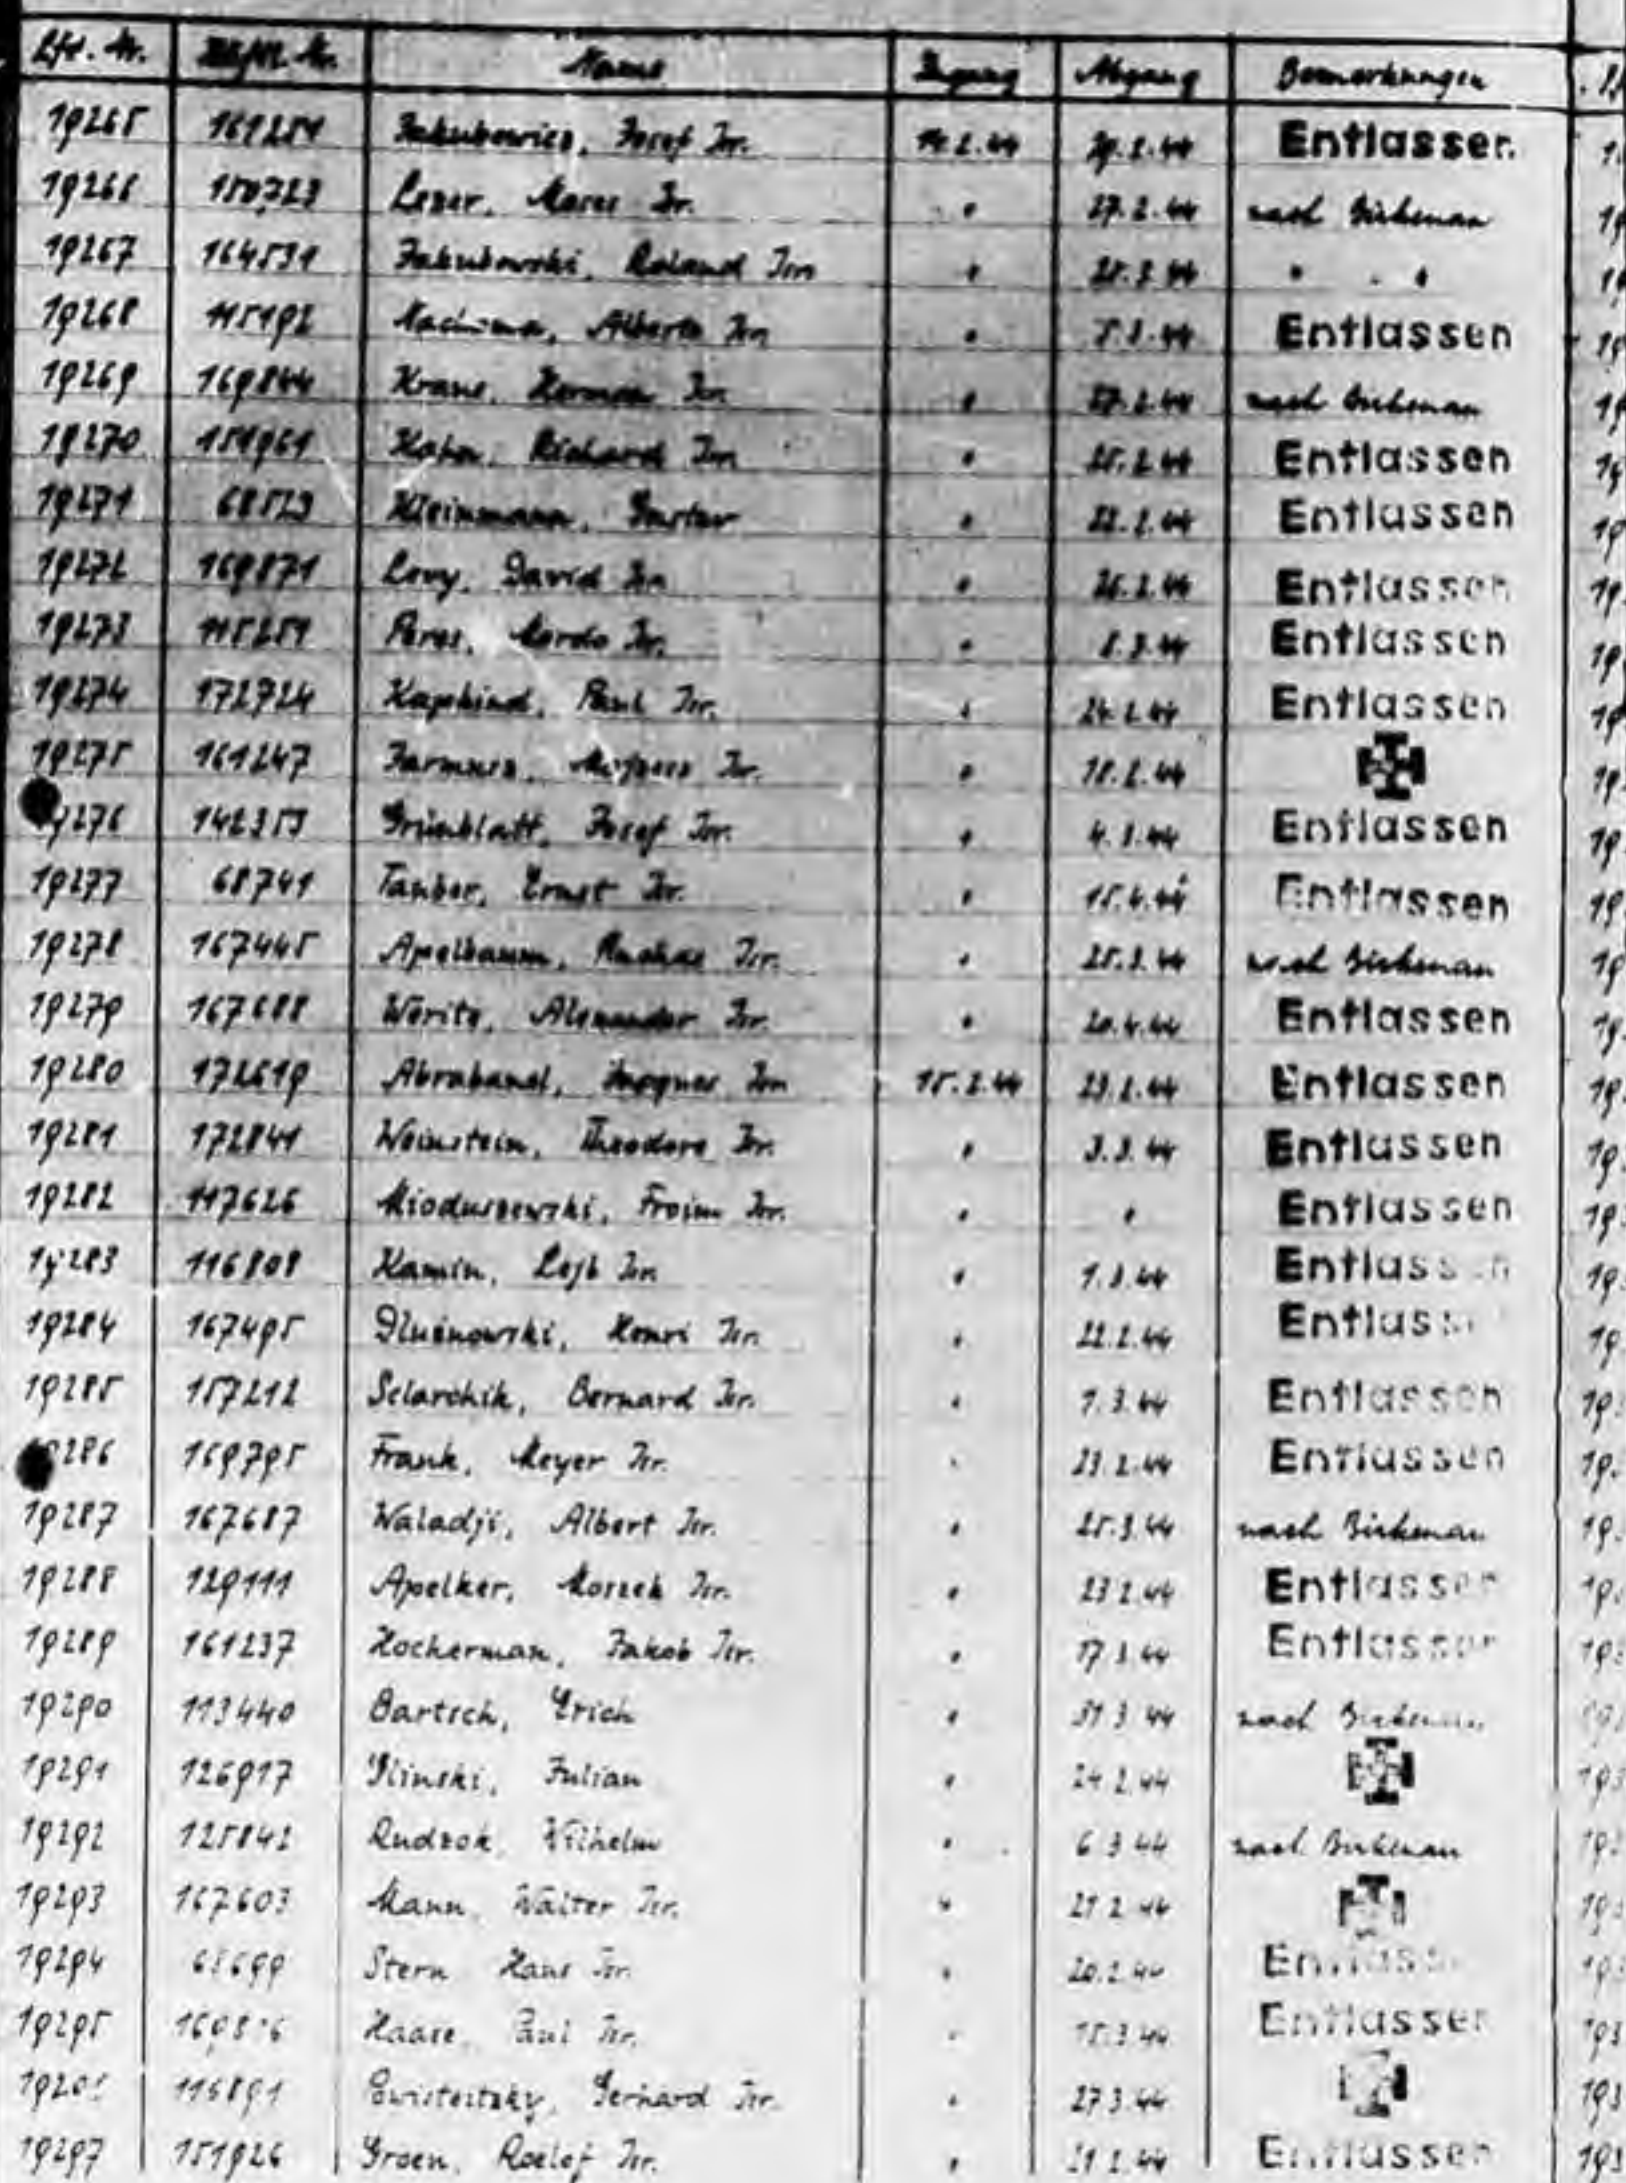 Lfd. Nr. Häftl. Nr. Name Zugang Abgang Bemerkungen
19265 161251 Jakubowicz, Josef Isr. 14.2.44 29.2.44 Entlassen
19266 150723 Lezer, Moses Isr. " 27.2.44 nach Birkenau
19267 164531 Jakubowski, Roland Isr. " 25.3.44 " " "
19268 115192 Alberto Isr. " Entlassen
19269 169844 Kraus, Herman Isr. " 27.2.44 nach Birkenau
19270 151961 Richard Isr. " 25.2.44 Entlassen
19271 68523 Kleinmann, Gustav " 22.2.44 Entlassen
19272 169871 Levy, David Isr. " 26.2.44 Entlassen
19273 115251 Peres, Mordo Isr. " 8.3.44 Entlassen
19274 172724 Kapskind, Paul Isr. " 24.2.44 Entlassen
19275 161247 Isr. " 18.2.44
19276 142353 Grünblatt, Josef Isr. " 4.3.44 Entlassen
19277 68741 Tauber, Ernst Isr. " 15.4.44 Entlassen
19278 167445 Apelbaum, Isr. " 25.3.44 nach Birkenau
19279 167688 Woritz, Alexander Isr. " 20.4.44 Entlassen
19280 172619 Abrabanel, Isr. 15.2.44 23.2.44 Entlassen
19281 172841 Weinstein, Theodore Isr. " 3.3.44 Entlassen
19282 117626 Mioduszewski, Froim Isr. " " Entlassen
19283 116808 Kamin, Lejb Isr. " 1.3.44 Entlassen
19284 167495 Dluznowski, Henri Isr. " 22.2.44 Entlassen
19285 157212 Sclarchik, Bernard Isr. " 1.3.44 Entlassen
19286 169795 Frank, Meyer Isr. " 23.2.44 Entlassen
19287 167687 Waladji, Albert Isr. " 25.3.44 nach Birkenau
19288 129111 Apelker, Moszek Isr. " 23.2.44 Entlassen
19289 161237 Hockerman, Jakob Isr. " 17.3.44 Entlassen
19290 113440 Bartsch, Erich " 31.3.44 nach Birkenau
19291 126917 Glinski, Julian " 24.2.44
19292 125842 Rudzok, Wilhelm " 6.3.44 nach Birkenau
19293 167603 Mann, Walter Isr. " 21.2.44
19294 68699 Stern Hans Isr. " 20.2.44 Entlassen
19295 Haase, Paul Isr. " 15.3.44 Entlassen
116891 Gerhard Isr. " 27.3.44
19297 151926 Groen, Roelof Isr. " 21.2.44 Entlassen